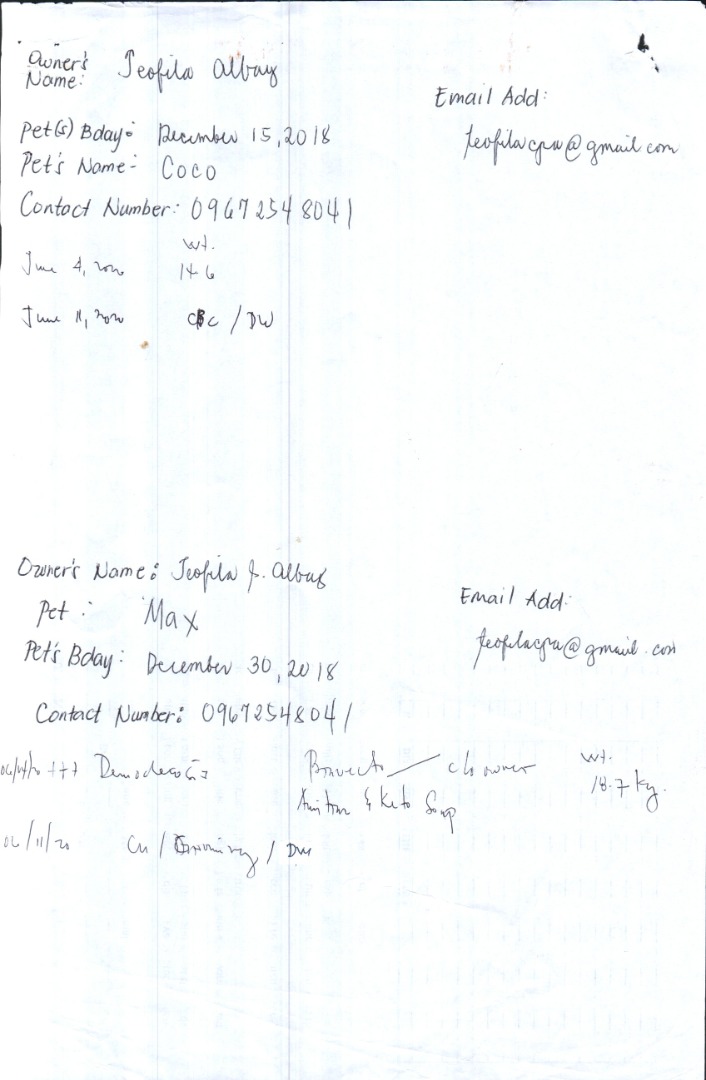 Owner's Name: Teofila Albay
Email Add:
teofilacpa@gmail.com
Pet(s) Bday: December 15, 2018
Pet's Name: Coco
Contact Number: 09672548041
wt.
June 4, 2020 14.6
June 11, 2020 CBC / DW
Owner's Name: Teofila J. Albay
Email Add:
Pet: Max
teofilacpa@gmail.com
Pet's Bday: December 30, 2018
Contact Number: 09672548041
06/04/20 +++ Demodecosis Bravecto c/o owner wt.
18.7 kg.
& Keto Soap
06/11/20 / Grooming / DW